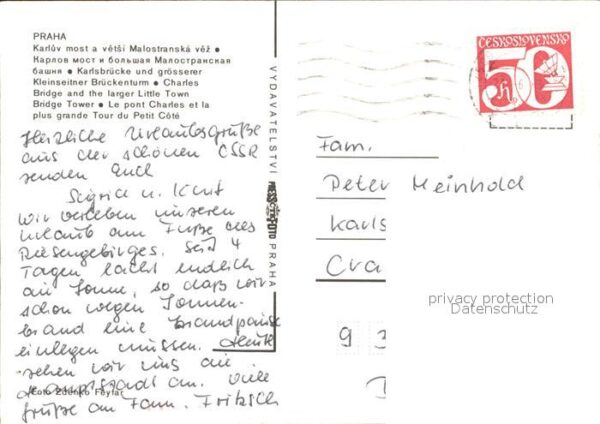 PRAHA
Karlův most a větší Malostranská věž ●
Карлов мост и большая Малостранская
башня ● Karlsbrücke und grösserer
Kleinseitner Brückenturm ● Charles
Bridge and the larger Little Town
Bridge Tower ● Le pont Charles et la
plus grande Tour du Petit Côté
Herzliche Urlaubsgrüße
aus der schönen CSSR
senden Euch
Sigrid u. Kurt
Wir verleben unseren
Urlaub am Fuße des
Riesengebirges. Seit 4
Tagen lacht endlich
die Sonne, so daß wir
schon wegen Sonnen-
brand eine Brandpause
einlegen müssen. Heute
sehen wir uns die
Hauptstadt an. Viele
Grüße an Fam. Fritzsch
Foto Zdenko Feyfar
VYDAVATELSTVÍ PRESSFOTO PRAHA
ČESKOSLOVENSKO
50 h
Fam.
Peter Meinhold
Karls
Cra
privacy protection
Datenschutz
9 3